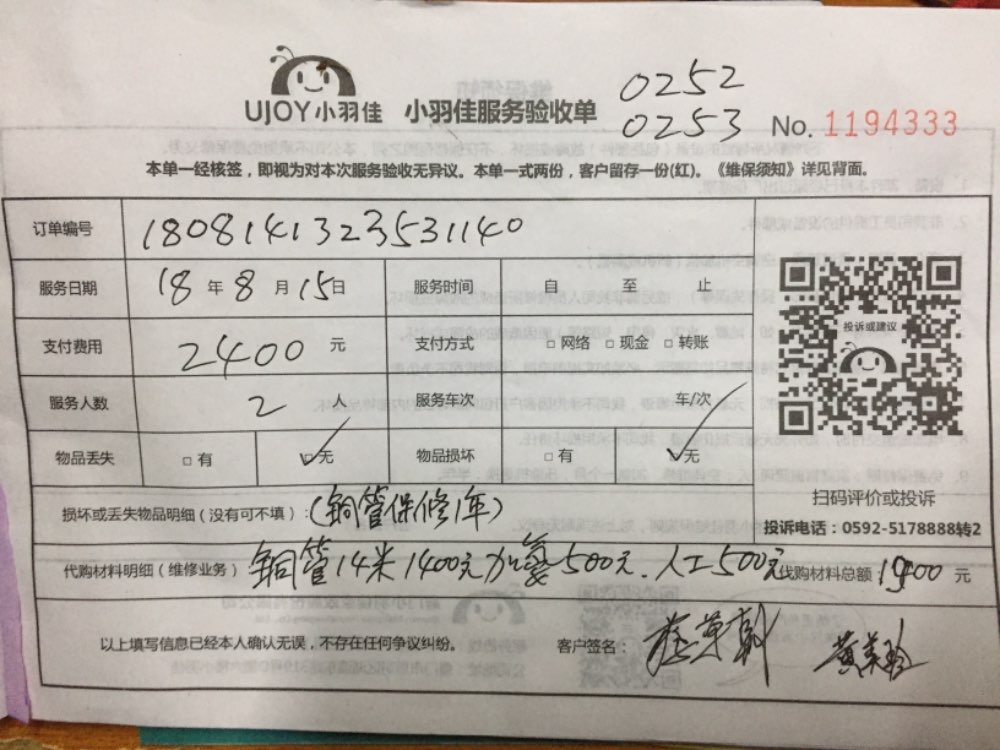 0252
UJOY小羽佳 小羽佳服务验收单 0253 No. 1194333
本单一经核签，即视为对本次服务验收无异议。本单一式两份，客户留存一份(红)。《维保须知》详见背面。
订单编号 1808141323531140
服务日期 18年8月15日 服务时间 自 至 止
支付费用 2400元 支付方式 □网络 □现金 □转账
投诉或建议
服务人数 2人 服务车次 车/次
物品丢失 □有 ☑无 物品损坏 □有 ☑无
扫码评价或投诉
损坏或丢失物品明细（没有可不填）：(铜管保修1年)
投诉电话：0592-5178888转2
代购材料明细（维修业务）：铜管14米1400元 加氟500元. 人工500元 代购材料总额 1900元
以上填写信息已经本人确认无误，不存在任何争议纠纷。 客户签名：